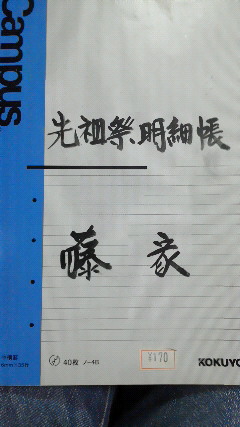 Campus
先祖祭、明細帳
藤家
40枚 ノ-4B
¥170
KOKUYO